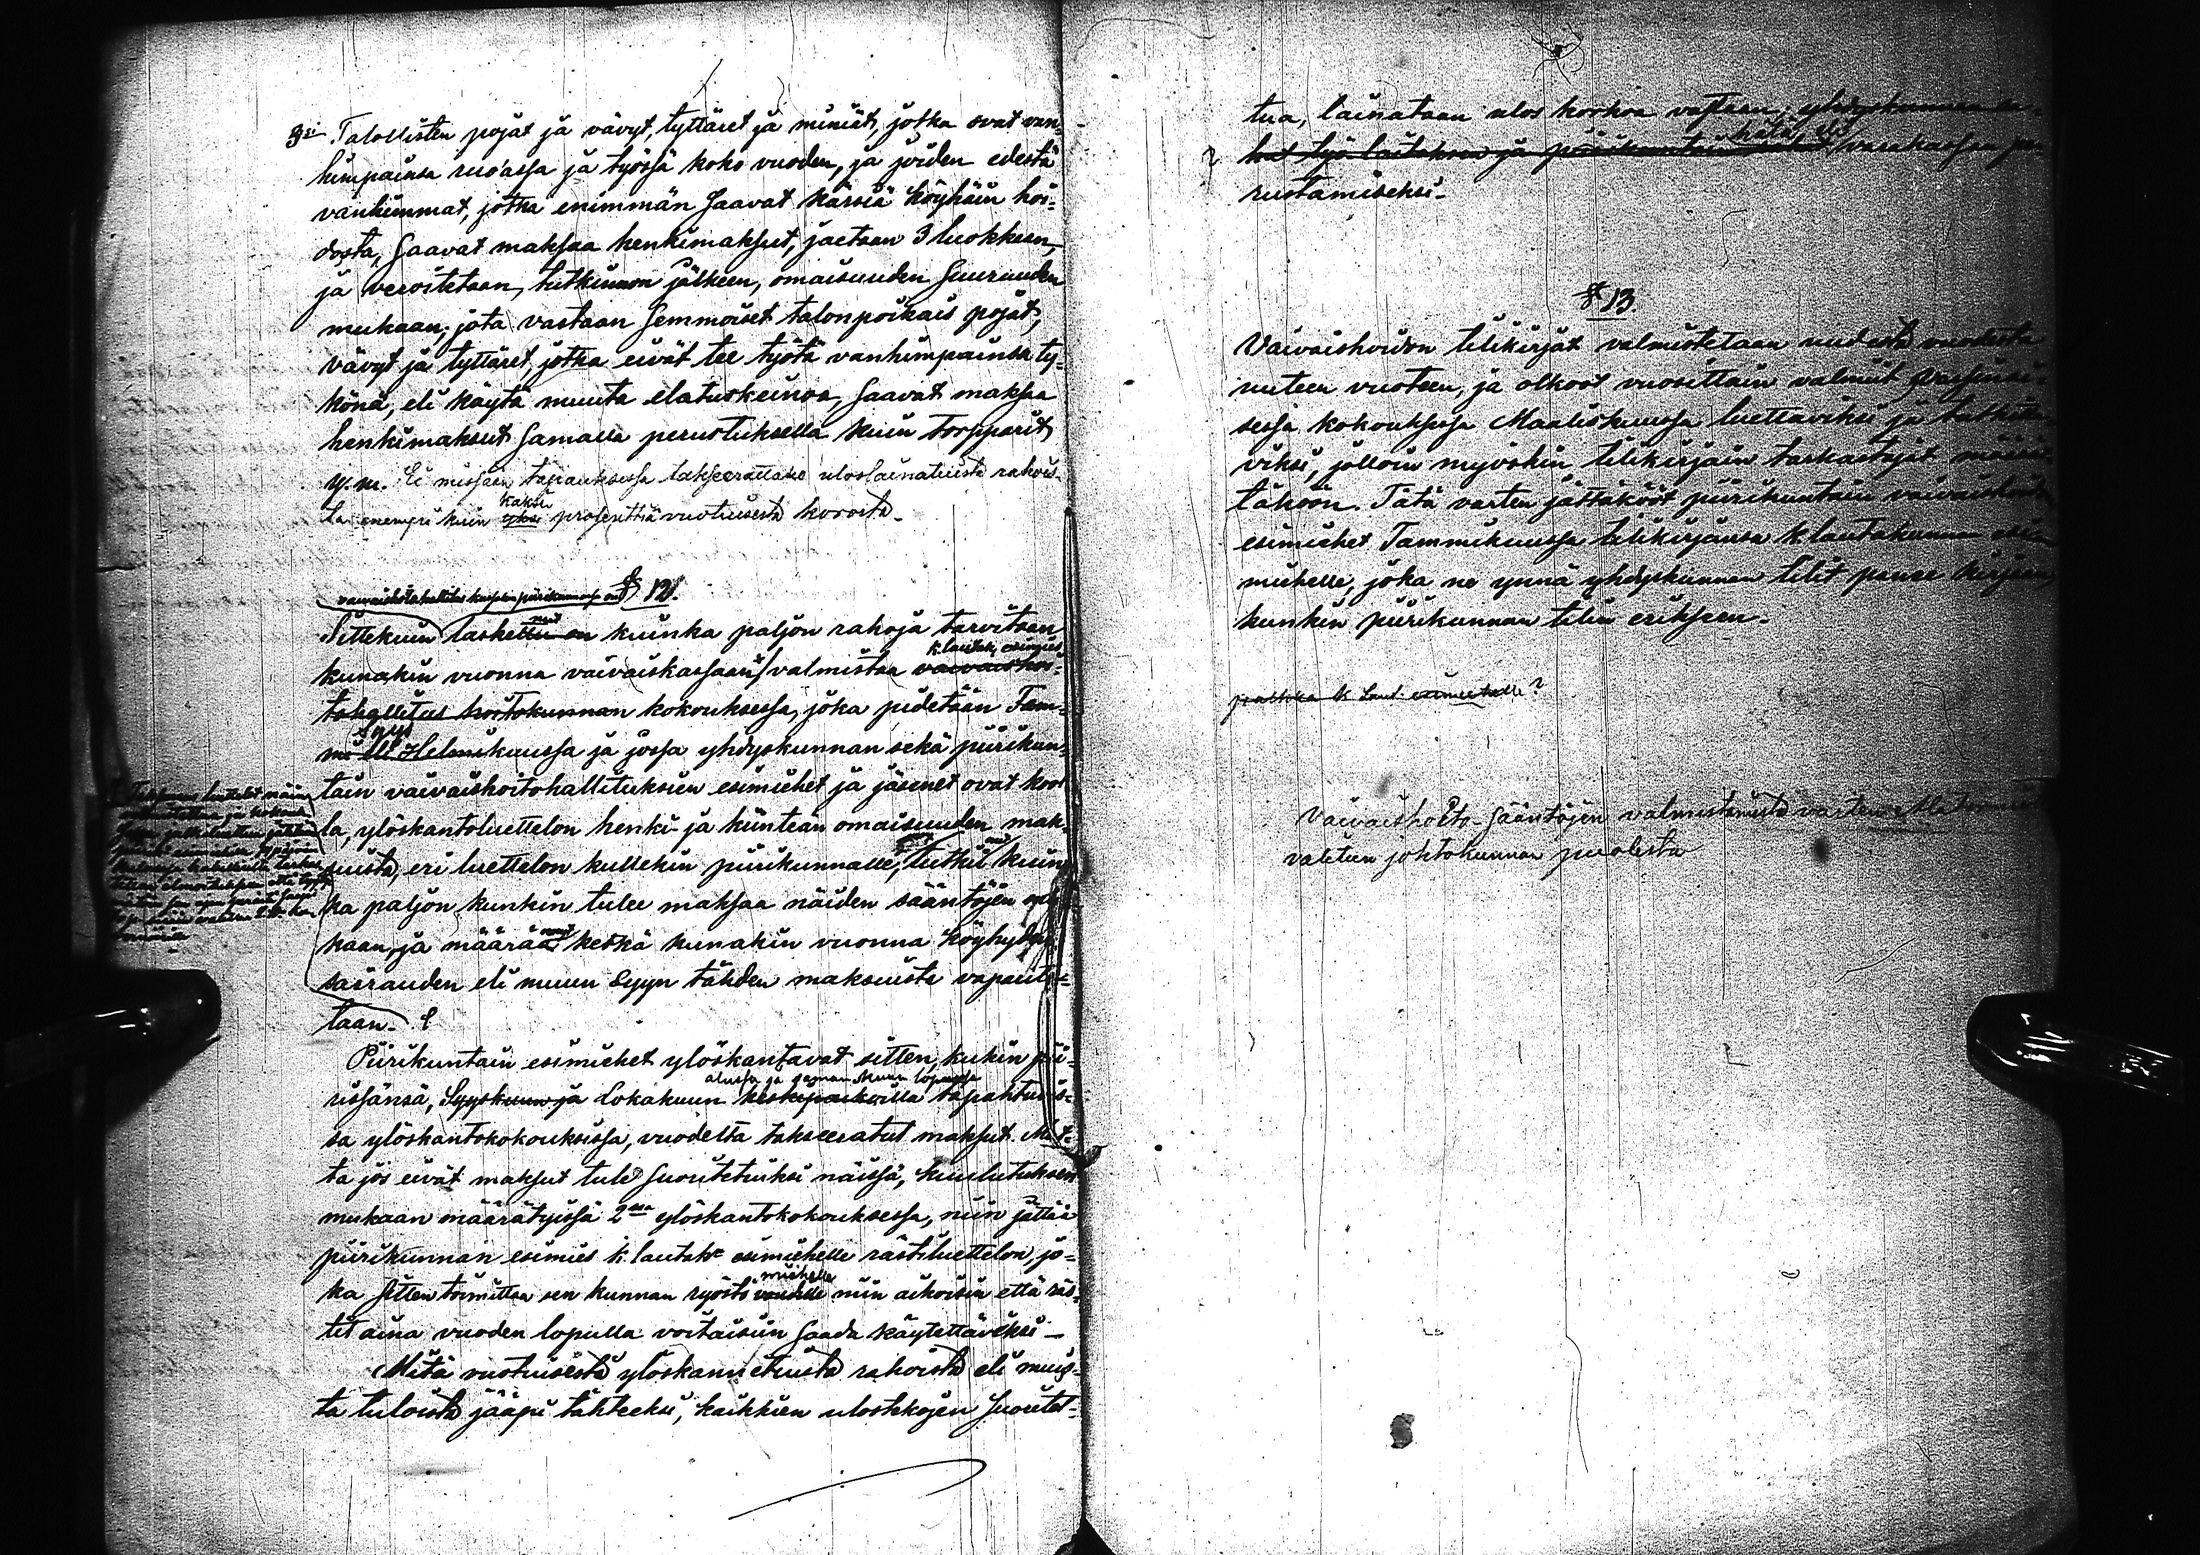 3si Talollisten pojat ja vävyt, tyttäret ja miniät, jotka ovat van-
himpainsa ruo'assa ja työssä koko vuoden, ja joiden edestä
vanhimmat, jotka enimmän saavat kärsiä köyhäin hoi-
dosta, saavat maksaa henkimaksut, jaetaan 3 luokkaan,
ja verotetaan, tutkinnon jälkeen, omaisuuden suuruuden
mukaan; jota vastaan semmoiset talonpoikais pojat,
vävyt ja tyttäret, jotka eivät tee työtä vanhimpainsa ty-
könä, eli käytä muuta elatuskeinoa, saavat maksaa
henkimaksut samalla perustuksella kuin torpparit
y. m. Ei missään tapauksessa takseerattako uloslainatuista rahois-
kaksi
ta enempi kuin yksi prosenttia vuotuisesta korosta.
§ 12.
vaivaishoitohallitus kussakin piirikunnassa on
Sittekuin laskettu on kuinka paljon rahoja tarvitaan
k. lautak. esimies
kunakin vuonna vaivaiskassaan, valmistaa vaivaishoi-
tohallitus hoitokunnan kokouksessa, joka pidetään Tam-
Syys
mi eli Helmikuussa ja jossa yhdyskunnan sekä piirikun-
tain vaivaishoitohallituksien esimiehet ja jäsenet ovat kool-
la, ylöskantoluettelon henki- ja kiinteän omaisuuden mak-
suista, eri luettelon kullekin piirikunnalle, tutkii kuin-
ka paljon kunkin tulee maksaa näiden sääntöjen mu-
kaan, ja määrää ketkä kunakin vuonna köyhyyden,
sairauden eli muun syyn tähden maksuista vapaute-
taan.
Piirikuntain esimiehet ylöskantavat sitten, kukin pii-
alussa ja saman kuun lopussa
rissänsä, Syyskuun ja Lokakuun keskipaikoilla tapahtuvis-
sa ylöskantokokouksissa, vuodelta takseeratut maksut. Mut-
ta jos eivät maksut tule suoritetuiksi näissä, kuulutuksen
mukaan määrätyissä 2 ylöskantokokouksessa, niin jättää
piirikunnan esimies k. lautak. esimiehelle rästiluettelon, jo-
miehelle
ka sitten toimittaa sen kunnan ryöstö voudille niin aikoisin että räs-
tit aina vuoden lopulla voitaisiin saada käytettäviksi —
Mitä vuotuisesta ylöskannetuista rahoista eli muis-
ta tuloista jääpi tähteeksi, kaikkien ulostekojen suoritet-
tua, lainataan ulos korkoa vastaan, yhdyskunnan
hätä eli
työ laitoksen ja piirikuntain varakassan pe-
rustamiseksi.
§ 13.
Vaivaishoidon tilikirjat valmistetaan uudesta vuodesta
uuteen vuoteen, ja olkoot vuosittain valmiit
sessa kokouksessa Maaliskuussa luettaviksi ja tutkitta-
viksi, jolloin myöskin tilikirjain tarkastajat määrät-
täköön. Tätä varten jättäkööt piirikuntain vaivaishoito
esimiehet Tammikuussa tilikirjansa k. lautakunnan esi-
miehelle, joka ne ynnä yhdyskunnan tilit panee kirjaan,
kunkin piirikunnan tilin erikseen.
k. laut. esimiehelle?
Vaivaishoito-sääntöjen valmistamista varten
valitun johtokunnan puolesta